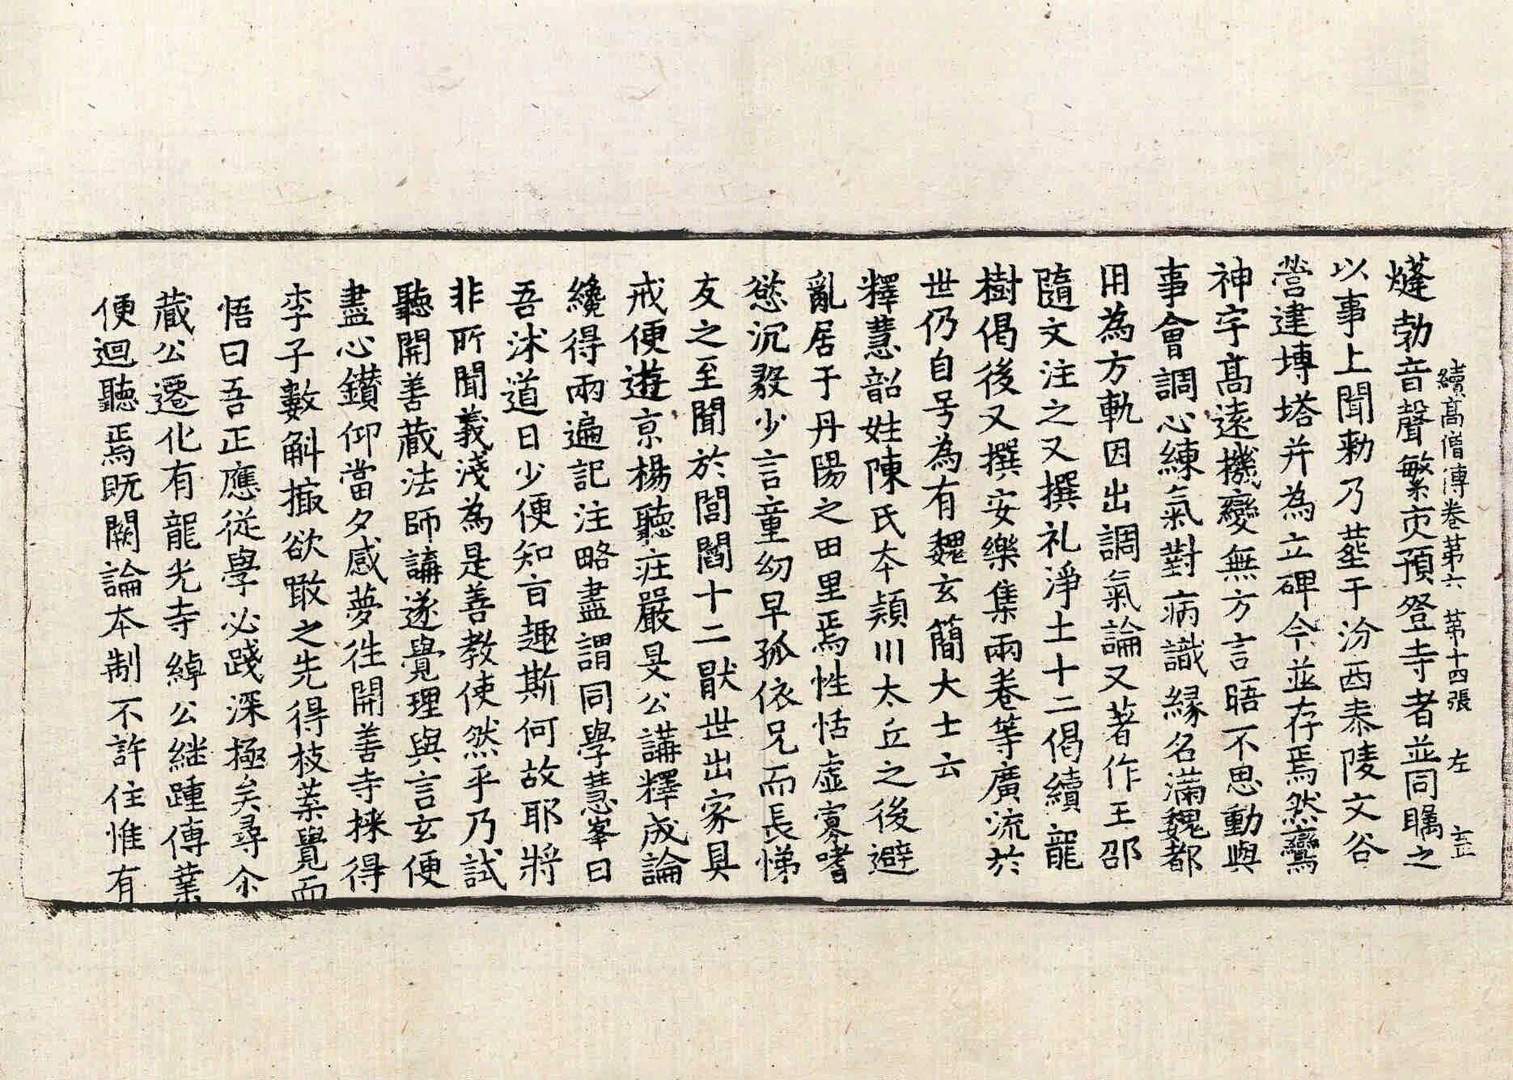 續高僧傳卷第六　第十四張　左
㷯勃音聲繁亦預登寺者並同矚之
以事上聞勑乃葬于汾西泰陵文谷
營建塼塔并為立碑今並存焉然鸞
神宇高遠機變無方言晤不思動與
事會調心練氣對病識縁名滿魏都
用為方軌因出調氣論又著作王邵
隨文注之又撰礼淨土十二偈續龍
樹偈後又撰安樂集兩卷等廣流於
世仍自号為有魏玄簡大士云
釋慧韶姓陳氏本潁川太丘之後避
亂居于丹陽之田里焉性恬虛寡嗜
慾沉毅少言童幼早孤依兄而長悌
友之至聞於閭閻十二猒世出家具
戒便遊京楊聽莊嚴旻公講釋成論
纔得兩遍記注略盡謂同學慧峯曰
吾沐道日少便知旨趣斯何故耶將
非所聞義淺為是善教使然乎乃試
聽開善藏法師講遂覺理與言玄便
盡心鑚仰當夕感夢往開善寺採得
李子數斛撮欲噉之先得枝葉覺而
悟曰吾正應從學必踐深極矣尋尒
藏公遷化有龍光寺綽公継踵傳業
便迴聽焉既闕論本制不許住惟有